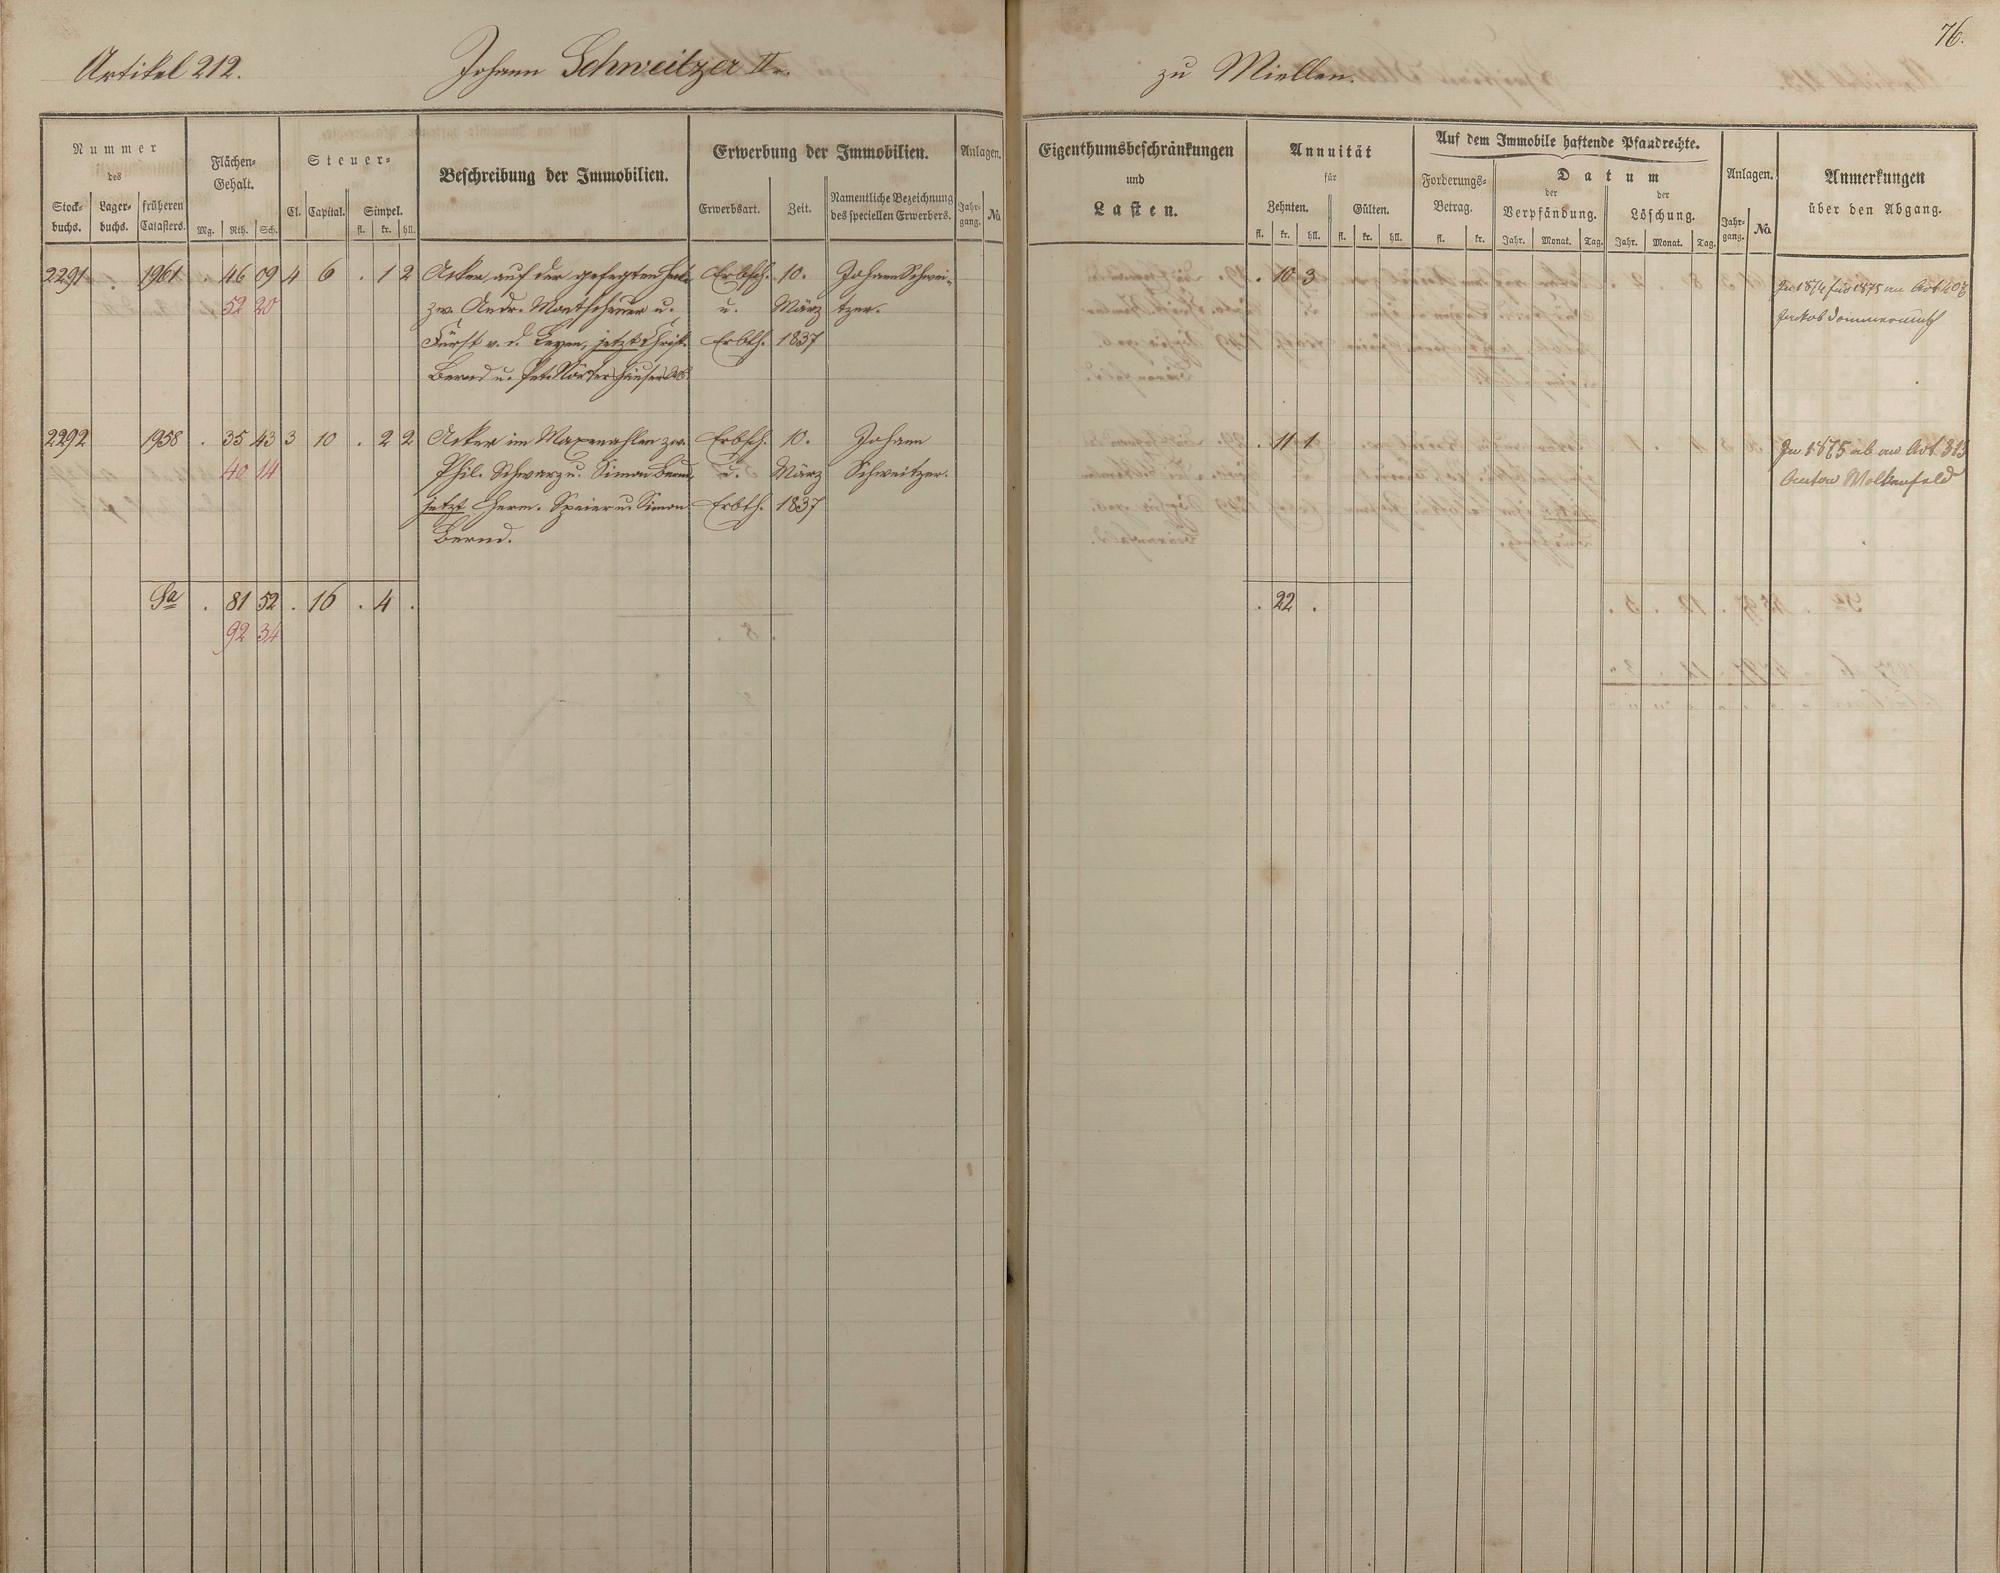 76.
Artikel 212. Johann Schweitzer IIr. zu Miellen.
Nummer
des
Stock-
buchs.
Lager-
buchs.
früheren
Catasters.
Flächen-
Gehalt.
Mg. Rth. Sch.
Steuer-
Cl. Capital. Simpel.
fl. kr. hll.
Beschreibung der Immobilien.
Erwerbung der Immobilien.
Erwerbsart. Zeit.
Namentliche Bezeichnung
des speciellen Erwerbers.
Anlagen.
Jahr-
gang.
No.
Eigenthumsbeschränkungen
und
Lasten.
Annuität
für
Zehnten. Gülten.
fl. kr. hll. fl. kr. hll.
Auf dem Immobile haftende Pfandrechte.
Forderungs-
Betrag.
fl. kr.
Datum
der der
Verpfändung. Löschung.
Jahr. Monat. Tag. Jahr. Monat. Tag.
Anlagen.
Jahr-
gang.
No.
Anmerkungen
über den Abgang.
2291 1961 . 46 09 4 6 . 1 2 Acker, auf der gefegten Erbsch. 10. Johann Schwei- . 10 3
52 20 zw. Andr. Montscheuer u. u. März tzer.
Fürst v. d. Leyen, jetzt Christ. Erbth. 1837
Bernd u. Pet. Nörtershäuser
In 1874 für 1875 an Art.
Jackob
2292 1958 . 35 43 3 10 . 2 2 Acker im zw. Erbsch. 10. Johann . 11 1
40 14 Phil. Schwarz u. Simon Bernd, u. März Schweitzer.
jetzt Herm. Speier u. Simon Erbth. 1837
Bernd.
In 1875 ab an Art. 313
Anton Molkenfeld
Sa . 81 52 . 16 . 4 . . 22 .
92 34